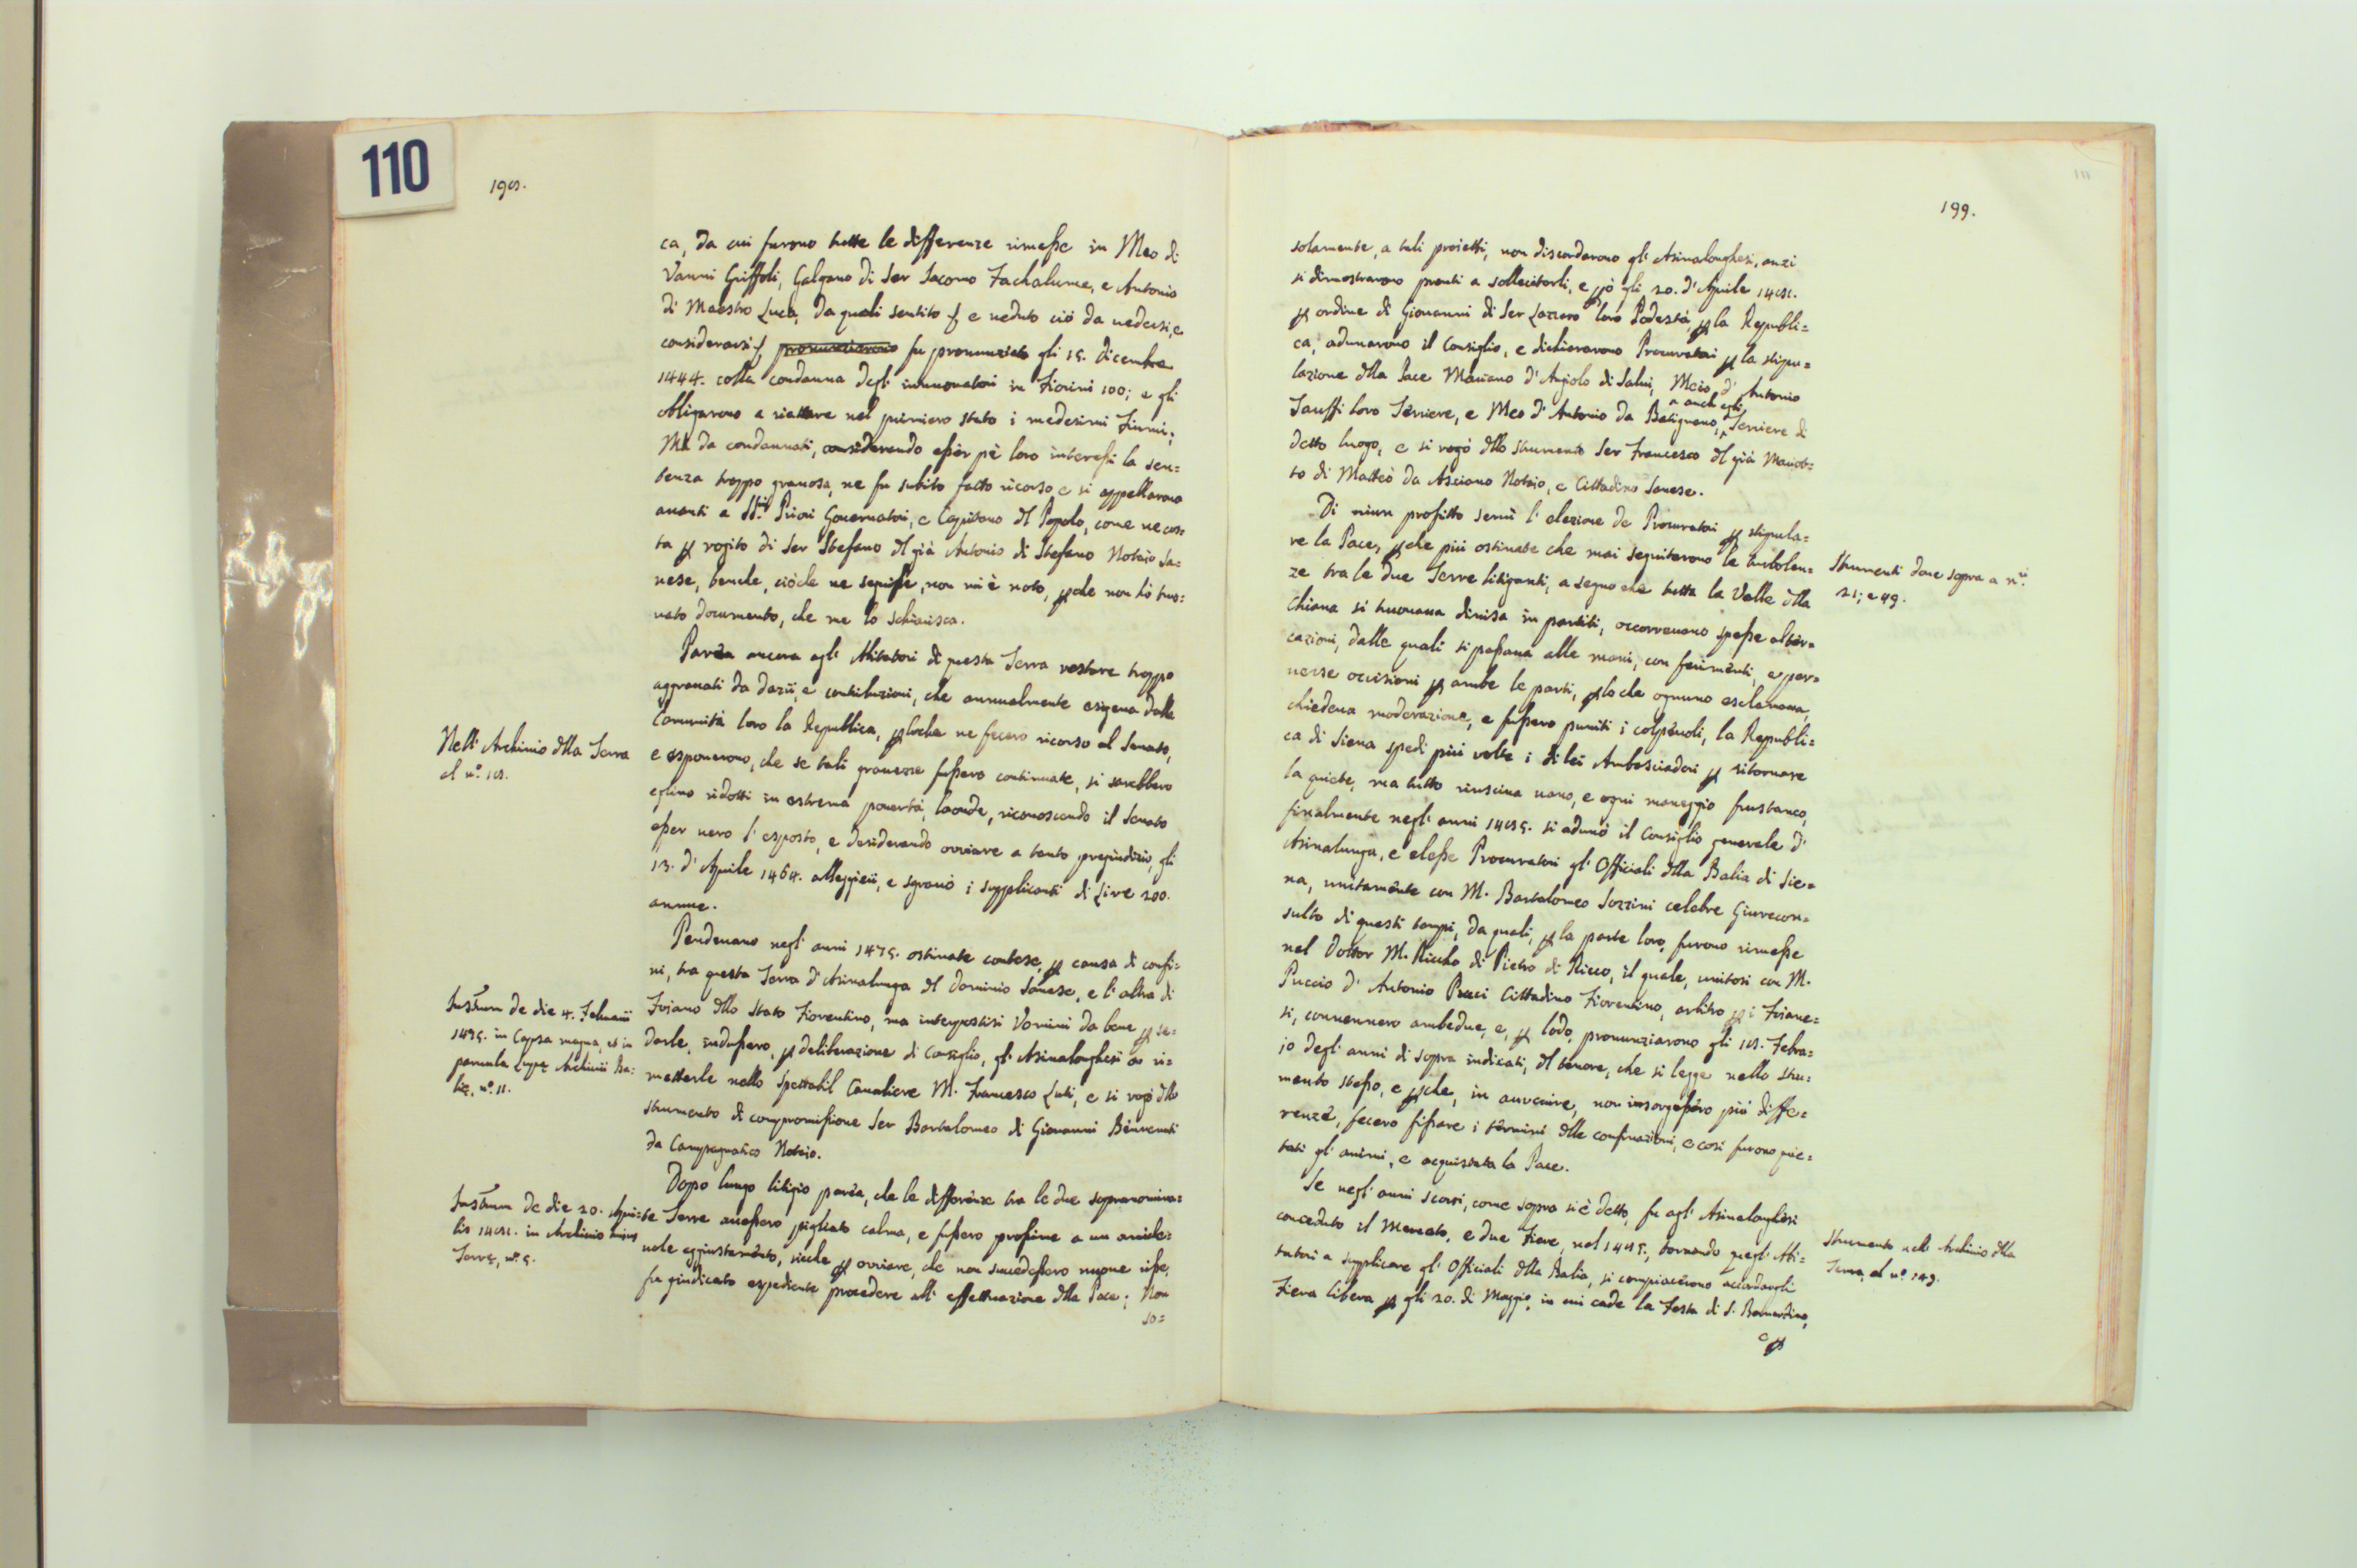 110
198.
ca, da cui furono tutte le differenze rimesse in Meo di
Vanni Griffoli, Galgano di Ser Iacomo Fachalume, e Antonio
di Maestro Luca, da quali sentito, e ueduto ciò da uedersi, e
considerarsi, pronunziarono fu pronunziato gli 15. dicembre
1444. colla condanna degli innouatori in Fiorini 100; e gli
obligarono a riattare nel primiero stato i medesimi Fiumi;
Ma da condannati, considerando esser pè loro interessi la sen=
tenza troppo grauosa, ne fu subito fatto ricorso e si appellarono
auanti a SS.ri Priori Gouernatori, e Capitano dl Popolo, come ne cos=
ta p rogito di Ser Stefano dl già Antonio di Stefano Notaio Sa=
nese, benche, ciòche ne seguisse, non mi è noto, pche non hò tro=
uato documento, che me lo schiarisca.
Parèa ancora agl' Abitatori di questa Terra restare troppo
aggrauati da dazii, e contribuzioni, che annualmente esigeua dalla
Comunità loro la Republica, ploche ne fecero ricorso al Senato,
e esponerono, che se tali grauezze fussero continuate, si sarebbero
eglino ridotti in estrema pouertà, laonde, riconoscendo il Senato
esser uero l' esposto, e desiderando ovviare a tanto pregiudizio, gli
13. d' Aprile 1464. alleggierì, e sgrauò i supplicanti di Lire 200.
annue.
Nell' Archiuio dlla Terra
al n.º 18.
Pendeuano negl' anni 1475. ostinate contese, p causa di confi=
ni, tra questa Terra d' Asinalunga dl Dominio Sanese, e l' altra di
Foiano dllo Stato Fiorentino, ma interpostisi Uomini da bene p se=
darle, indussero, p deliberazione di Consiglio, gl' Asinalonghesi a ri=
metterle nello Spettabil Caualiere M. Francesco Luti, e si rogò dllo
strumento di compromissione Ser Bartolomeo di Giouanni Benuenuti
da Campagnatico Notaio.
Instrum de die 4. Februarii
1475. in Capsa magna, et in
paruula Lupę Archiuii Ba=
lię, n.º 11.
Dopo lungo litigio parèa, che le differènze tra le due sopranomina=
te Terre auessero pigliato calma, e fussero prossime a un amiche=
uole aggiustamènto, sicche p ovviare, che non succedessero nuoue risse,
fu giudicato expediente procedere all' effettuazione dlla Pace; Non
so=
Instrum de die 20. Apri=
lis 1481. in Archiuio huius
Terrę, n.º 5.
199.
solamente, a tali proietti, non discordarono gl' Asinalonghesi, anzi
si dimostrarono pronti a sollecitarli, e pò gli 20. d' Aprile 1481.
p ordine di Giouanni di Ser Lazzero loro Podestà, p la Republi=
ca, adunarono il Consiglio, e dichiararono Procuratori p la stipu=
lazione dlla Pace Mariano d' Angiolo di Salui, Meio d' Antonio
Iauffi loro Terriere, e Meo d' Antonio da Batignano, a anch' egli Terriere di
detto luogo, e si rogò dllo strumento Ser Francesco dl già Mariot=
to di Matteo da Asciano Notaio, e Cittadino Sanese.
Di niun profitto seruì l' elezione de Procuratori p stipula=
re la Pace, pche più ostinate che mai seguitarono le turbolen=
ze tra le due Terre litiganti, a segno che tutta la Valle dlla
Chiana si trouaua diuisa in partiti, occorreuano spesse alter=
cazioni, dalle quali si passaua alle mani, con ferimènti, e per=
uerse occisioni p ambe le parti, ploche ognuno esclamaua,
chiedeua moderazione, e fussero puniti i colpèuoli, la Republi=
ca di Siena spedì più volte i di lei Ambasciadori p ritornare
la quiete, ma tutto riusciua uano, e ogni maneggio frustaneo,
finalmente negl' anni 1485. si adunò il Consiglio generale d'
Asinalunga, e elesse Procuratori gl' Officiali dlla Balia di Sie=
na, unitamènte con M. Bartolomeo Sozzini celebre Giurecon=
sulto di questi tempi, da quali, p la parte loro, furono rimesse
nel Dottor M. Riccho di Pietro di Ricco, il quale, unitosi con M.
Puccio d' Antonio Pucci Cittadino Fiorentino, arbitro p i Foiane=
si, conuennero ambedue, e, p lodo, pronunziarono gli 18. Febra=
io degli anni di sopra indicati, dl tenore, che si legge nello stru=
mento stesso, e pche, in auuenire, non insorgessèro più diffe=
renzè, fecero fissare i tèrmini dlle confinazioni, e così furono quie=
tati gl' animi, e acquistata la Pace.
Strumenti doue sopra a n.i
21; e 49.
Se negl' anni scorsi, come sopra si è detto, fu agl' Asinalonghèsi
conceduto il Mercato, e due Fiere, nel 1485., tornando quegl' Abi=
tatori a supplicare gl' Officiali dlla Balia, si compiacèrono accordargli
Fiera libera p gli 20. di Maggio, in cui cade la Festa di S. Bernardino,
e p
Strumento nell' Archiuio dlla
Terra, al n.º 149.